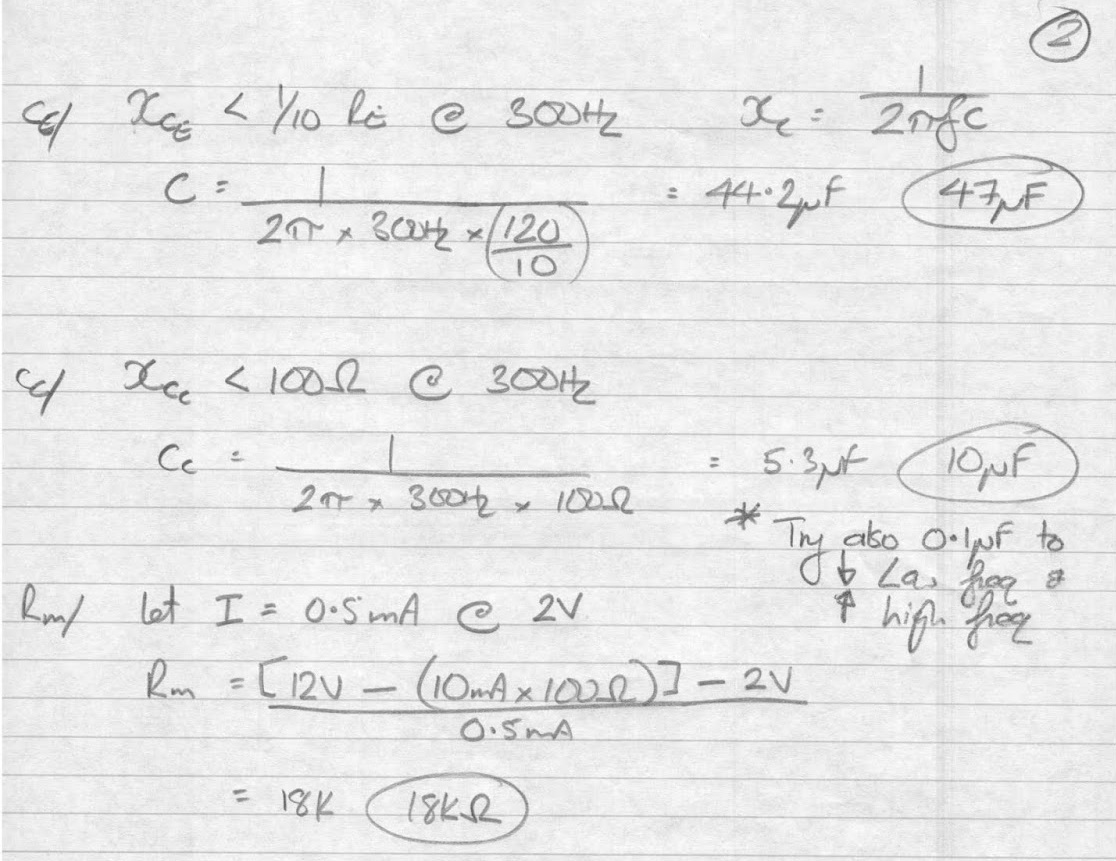 2
CE/ XCE < 1/10 RE @ 300Hz Xc = 1/2πfC
C = 1/2π × 300Hz × (120/10) = 44.2μF 47μF
Cc/ XCc < 100Ω @ 300Hz
Cc = 1/2π × 300Hz × 100Ω = 5.3μF 10μF
* Try also 0.1μF to
↓ Low freq &
↑ high freq
Rm/ let I = 0.5mA @ 2V
Rm = [12V – (10mA × 100Ω)] – 2V/0.5mA
= 18K 18KΩ